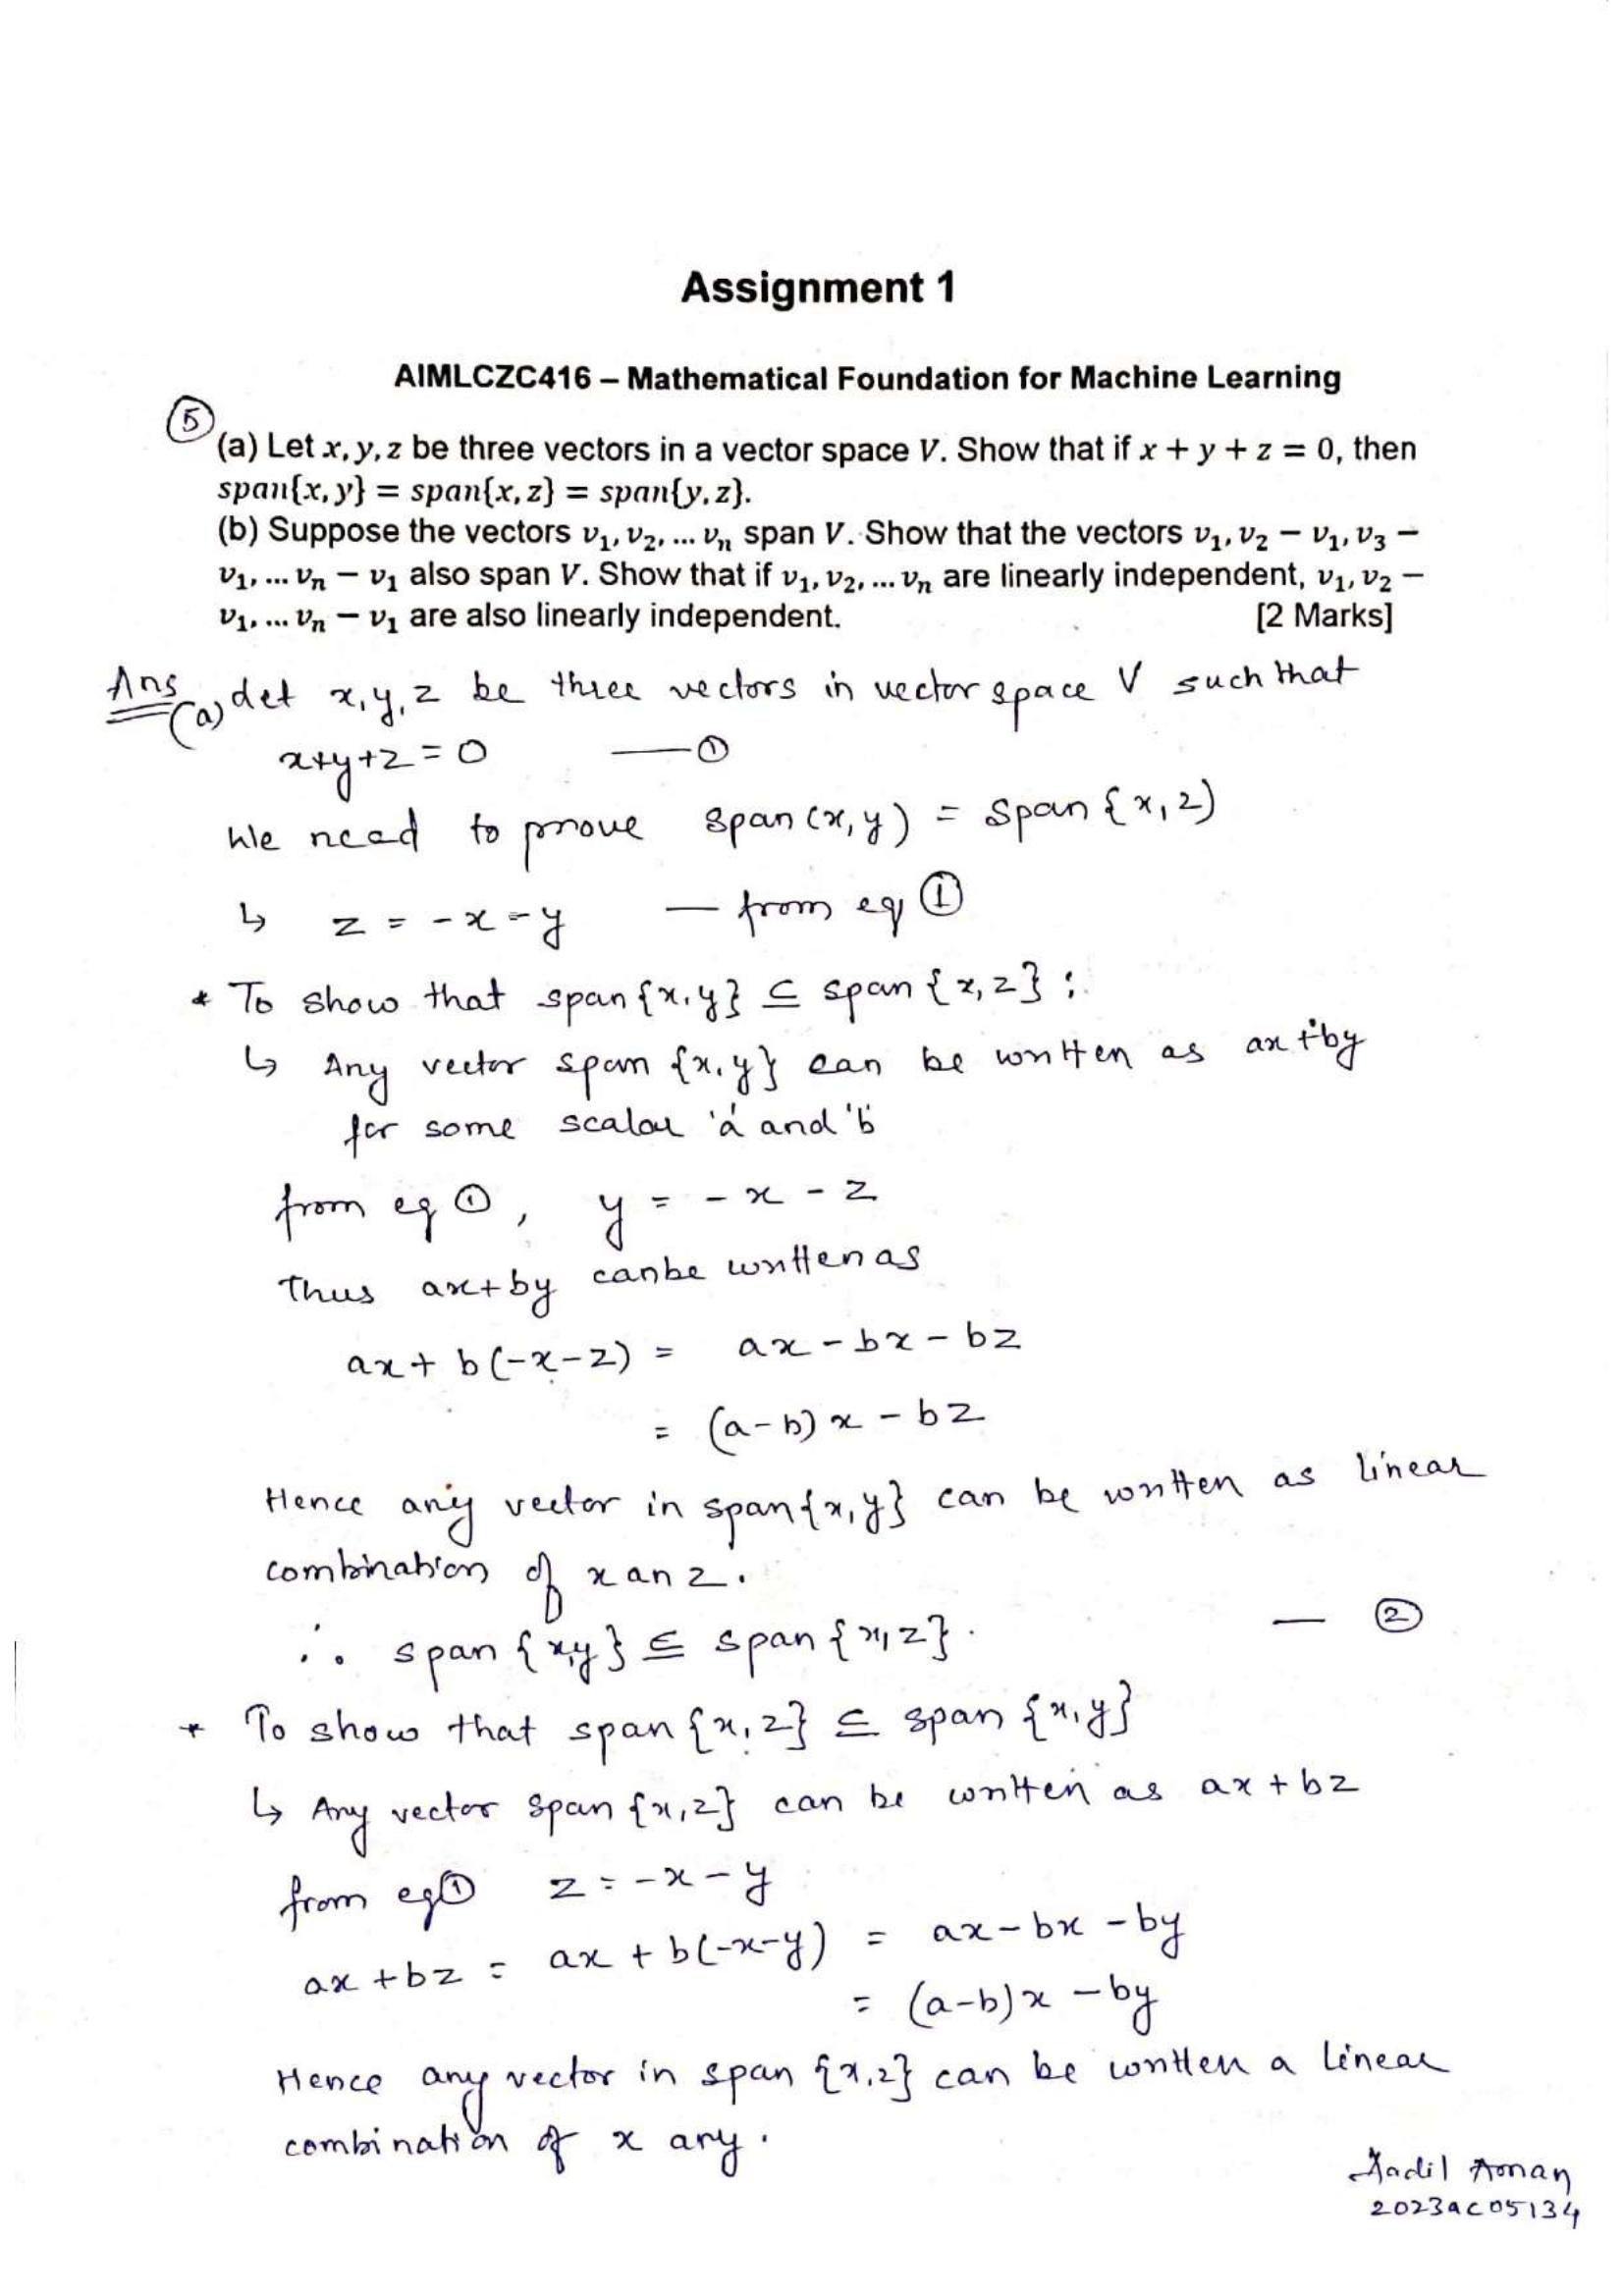 Assignment 1
AIMLCZC416 – Mathematical Foundation for Machine Learning
5
(a) Let x, y, z be three vectors in a vector space V. Show that if x + y + z = 0, then
span{x, y} = span{x, z} = span{y, z}.
(b) Suppose the vectors v₁, v₂, ... vₙ span V. Show that the vectors v₁, v₂ − v₁, v₃ −
v₁, ... vₙ − v₁ also span V. Show that if v₁, v₂, ... vₙ are linearly independent, v₁, v₂ −
v₁, ... vₙ − v₁ are also linearly independent. [2 Marks]
Ans (a) det x, y, z be three vectors in vector space V such that
x+y+z = 0 —①
We need to prove span(x, y) = span{x, z)
↳ z = -x-y — from eq ①
* To show that span{x, y} ⊆ span{x, z} :
↳ Any vector span {x, y} can be written as ax+by
for some scalar 'a' and 'b'
from eq ①, y = -x - z
Thus ax+by canbe written as
ax + b(-x-z) = ax - bx - bz
= (a-b) x - bz
Hence any vector in span{x, y} can be written as linear
combination of x an z.
∴ span {x,y} ⊆ span {x, z}. — ②
* To show that span {x, z} ⊆ span {x, y}
↳ Any vector span {x, z} can be written as ax + bz
from eq① z = -x-y
ax + bz = ax + b(-x-y) = ax - bx - by
= (a-b)x - by
Hence any vector in span {x, z} can be written a linear
combination of x any.
Aadil Aman
2023ac05134